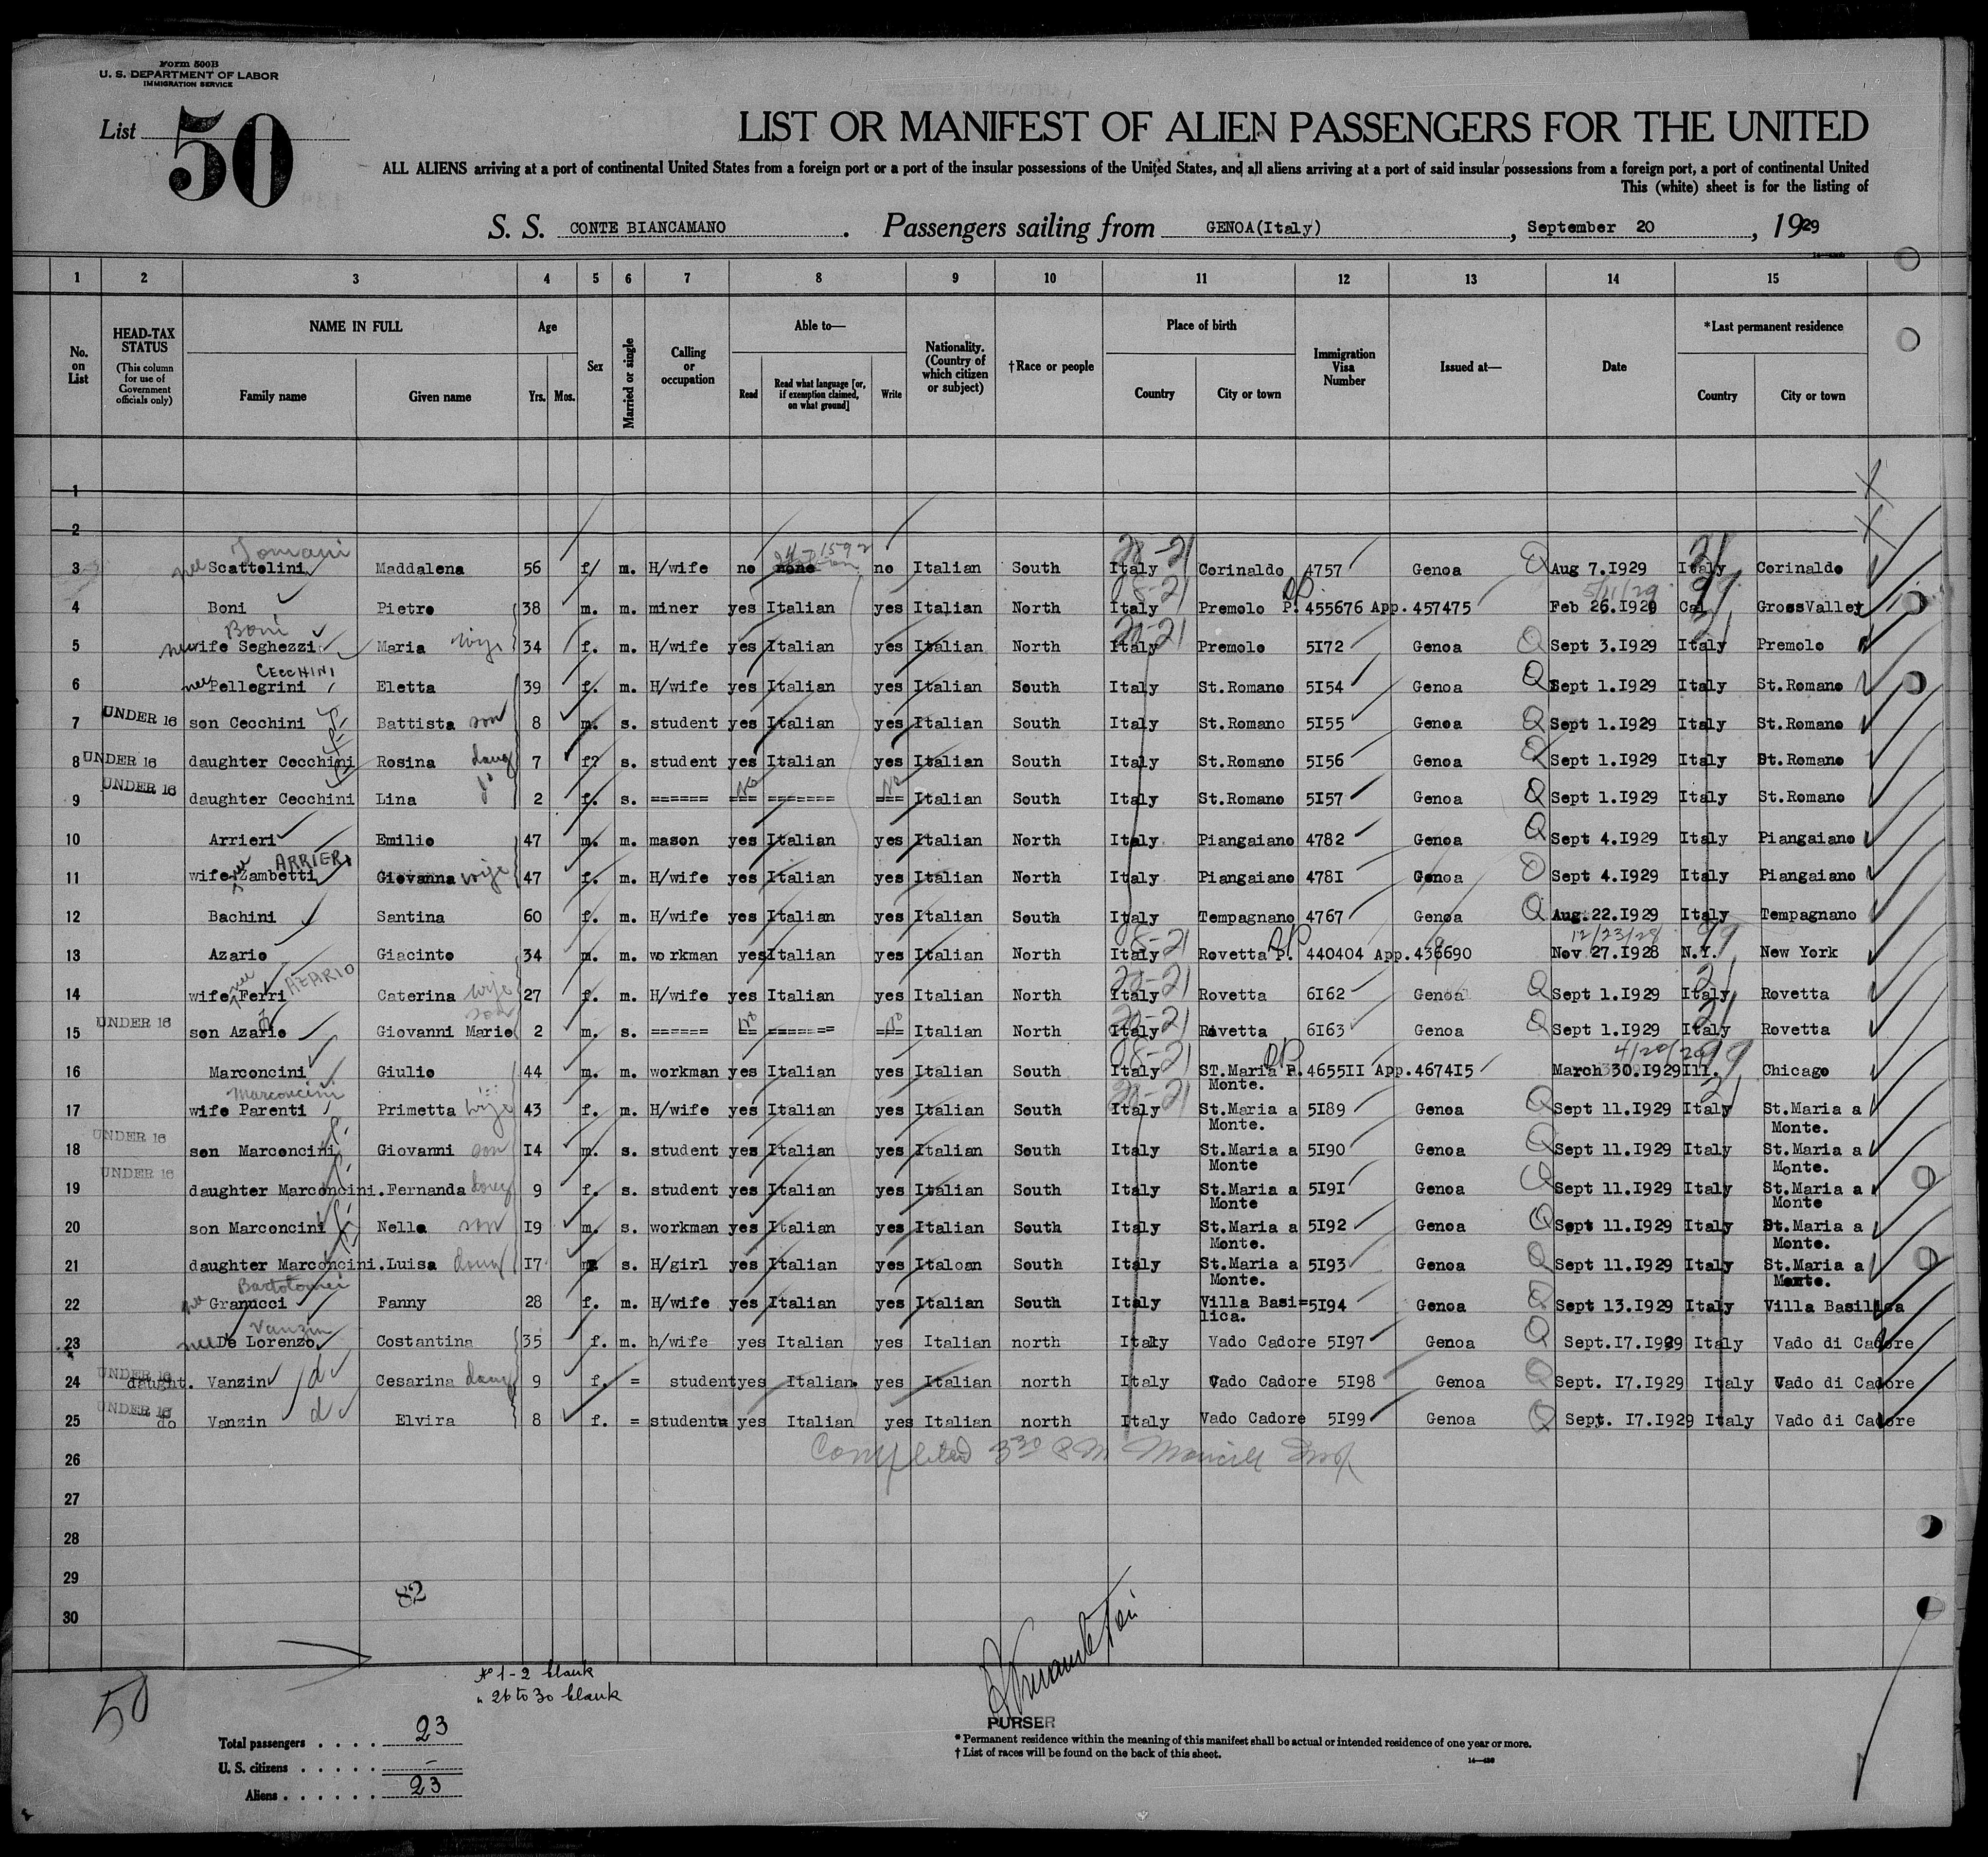 Form 500B
U. S. DEPARTMENT OF LABOR
IMMIGRATION SERVICE
List 50
LIST OR MANIFEST OF ALIEN PASSENGERS FOR THE UNITED
ALL ALIENS arriving at a port of continental United States from a foreign port or a port of the insular possessions of the United States, and all aliens arriving at a port of said insular possessions from a foreign port, a port of continental United
This (white) sheet is for the listing of
S. S. CONTE BIANCAMANO . Passengers sailing from GENOA(Italy) , September 20 , 1929
1 2 3 4 5 6 7 8 9 10 11 12 13 14 15
No. on List
HEAD-TAX STATUS
(This column for use of Government officials only)
NAME IN FULL
Family name
Given name
Age
Yrs. Mos.
Sex
Married or single
Calling or occupation
Able to—
Read
Read what language [or, if exemption claimed, on what ground]
Write
Nationality. (Country of which citizen or subject)
†Race or people
Place of birth
Country
City or town
Immigration Visa Number
Issued at—
Date
*Last permanent residence
Country
City or town
1
2
Tomani 20-21 21
3 nee Scattolini Maddalena 56 f/ m. H/wife no none no Italian South Italy Corinaldo 4757 Genoa Q Aug 7.I929 Italy Corinaldo
5/11/29 99
4 Boni Pietro 38 m. m. miner yes Italian yes Italian North Italy Premolo P. 455676 App. 457475 Feb 26.I929 Cal GrossValley
Boni 20-21 21
5 nee wife Seghezzi Maria wife 34 f. m. H/wife yes Italian yes Italian North Italy Premolo 5I72 Genoa Q Sept 3.I929 Italy Premolo
CECCHINI
6 nee Pellegrini Eletta 39 f. m. H/wife yes Italian yes Italian South Italy St.Romano 5I54 Genoa Q Sept 1.I929 Italy St.Romano
7 UNDER 16 son Cecchini Battista son 8 m. s. student yes Italian yes Italian South Italy St.Romano 5I55 Genoa Q Sept 1.I929 Italy St.Romano
8 UNDER 16 daughter Cecchini Rosina daug 7 f? s. student yes Italian yes Italian South Italy St.Romano 5I56 Genoa Q Sept 1.I929 Italy St.Romano
9 UNDER 16 daughter Cecchini Lina do 2 f. s. ====== === No ======= === No Italian South Italy St.Romano 5I57 Genoa Q Sept 1.I929 Italy St.Romano
10 Arrieri Emilio 47 m. m. mason yes Italian yes Italian North Italy Piangaiano 4782 Genoa Q Sept 4.I929 Italy Piangaiano
ARRIERI
11 wife nee Zambetti Giovanna wife 47 f. m. H/wife yes Italian yes Italian North Italy Piangaiano 478I Genoa Q Sept 4.I929 Italy Piangaiano
12 Bachini Santina 60 f. m. H/wife yes Italian yes Italian South Italy Tempagnano 4767 Genoa Q Aug.22.I929 Italy Tempagnano
12/23/28 99
13 Azario Giacinto 34 m. m. workman yes Italian yes Italian North Italy Rovetta P. 440404 App. 436690 Nov 27.I928 N.Y. New York
AZARIO 20-21 21
14 wife nee Ferri Caterina wife 27 f. m. H/wife yes Italian yes Italian North Italy Rovetta 6I62 Genoa Q Sept 1.I929 Italy Rovetta
son 20-21 21
15 UNDER 16 son Azario Giovanni Mario 2 m. s. ====== == No ======= === No Italian North Italy Rovetta 6I63 Genoa Q Sept 1.I929 Italy Rovetta
4/20/29 99
16 Marconcini Giulio 44 m. m. workman yes Italian yes Italian South Italy ST.Maria P. 4655II App. 4674I5 March 30.I929 Ill. Chicago
Monte.
Marconcini 20-21 21
17 wife Parenti Primetta wife 43 f. m. H/wife yes Italian yes Italian South Italy St.Maria a 5I89 Genoa Q Sept 11.I929 Italy St.Maria a
Monte. Monte.
18 UNDER 16 son Marconcini Giovanni son I4 m. s. student yes Italian yes Italian South Italy St.Maria a 5I90 Genoa Q Sept 11.I929 Italy St.Maria a
Monte Monte.
19 UNDER 16 daughter Marconcini.Fernanda daug 9 f. s. student yes Italian yes Italian South Italy St.Maria a 5I9I Genoa Q Sept 11.I929 Italy St.Maria a
Monte Monte
20 son Marconcini Nello son I9 m. s. workman yes Italian yes Italian South Italy St.Maria a 5I92 Genoa Q Sept 11.I929 Italy St.Maria a
Monte. Monte.
21 daughter Marconcini.Luisa daug I7 s. H/girl yes Italian yes Italoan South Italy St.Maria a 5I93 Genoa Q Sept 11.I929 Italy St.Maria a
Monte. Monte.
Bartolomei
22 nee Granucci Fanny 28 f. m. H/wife yes Italian yes Italian South Italy Villa Basi= 5I94 Genoa Q Sept 13.I929 Italy Villa Basilica
lica.
Vanzin
23 nee De Lorenzo Costantina 35 f. m. h/wife yes Italian yes Italian north Italy Vado Cadore 5I97 Genoa Q Sept.I7.I929 Italy Vado di Cadore
24 UNDER 16 daught. Vanzin d Cesarina daug 9 f. = student yes Italian. yes Italian north Italy Vado Cadore 5I98 Genoa Q Sept. I7.I929 Italy Vado di Cadore
25 UNDER 16 do Vanzin d Elvira 8 f. = student yes Italian yes Italian north Italy Vado Cadore 5I99 Genoa Q Sept. I7.I929 Italy Vado di Cadore
26 Completed 3 30 PM
27
28
29
82
30
50
No 1-2 blank
" 26 to 30 blank
PURSER
Total passengers . . . . 23
U. S. citizens . . . . . –
Aliens . . . . . . 23
* Permanent residence within the meaning of this manifest shall be actual or intended residence of one year or more.
† List of races will be found on the back of this sheet.